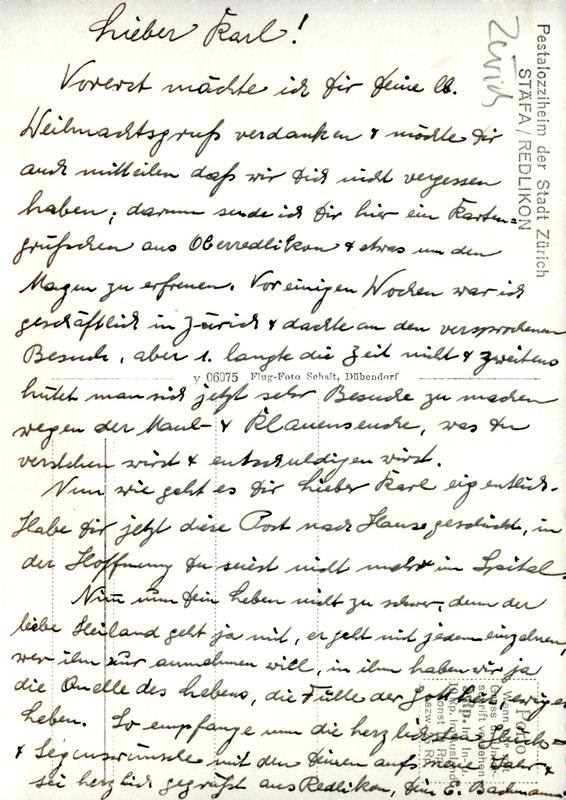 Lieber Karl!
Vorerst möchte ich Dir deine lb.
Weihnachtsgruß verdanken & möchte Dir
auch mitteilen daß wir Dich nicht vergessen
haben; darum sende ich Dir hier ein Karten=
grüßchen aus Oberredlikon & etwas um den
Magen zu erfreuen. Vor einigen Wochen war ich
geschäftlich in Zürich & dachte an den versprochenen
Besuch, aber 1. langte die Zeit nicht & zweitens
y 06075 Flug-Foto Schalt, Dübendorf
hütet man sich jetzt sehr Besuche zu machen
wegen der Maul- & Klauenseuche, was Du
verstehen wirst & entschuldigen wirst.
Nun wie geht es Dir lieber Karl eigentlich.
Habe Dir jetzt diese Post nach Hause geschickt, in
der Hoffnung Du seiest nicht mehr im Spital.
Nimm nun dein Leben nicht zu schwer, denn der
liebe Heiland geht ja mit, er geht mit jedem einzelnen,
wer ihn nur annehmen will, in ihm haben wir ja
die Quelle des Lebens, die Fülle der Gottheit, ewiges
Leben. So empfange nun die herzlichsten Glück=
& Segenswünsche mit den deinen aufs neue Jahr &
sei herzlich gegrüßt aus Redlikon, dein E. Bachmann
Pestalozziheim der Stadt Zürich
STÄFA / REDLIKON
Zürich
Photo